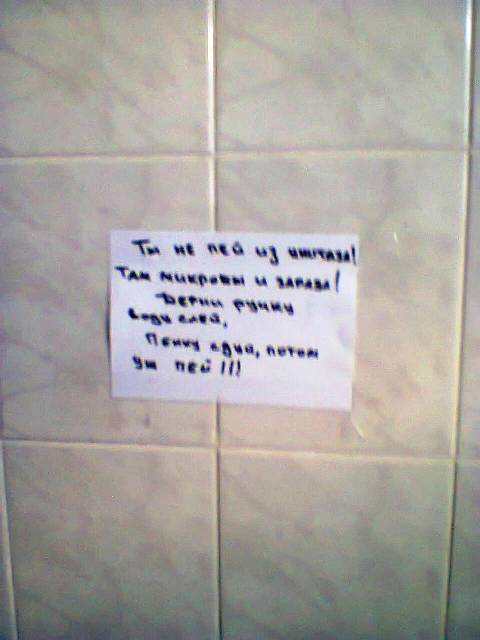 Ты не пей из унитаза!
Там микробы и зараза!
Дерни ручку
воду слей,
Пенку сдуй, потом
уж пей!!!